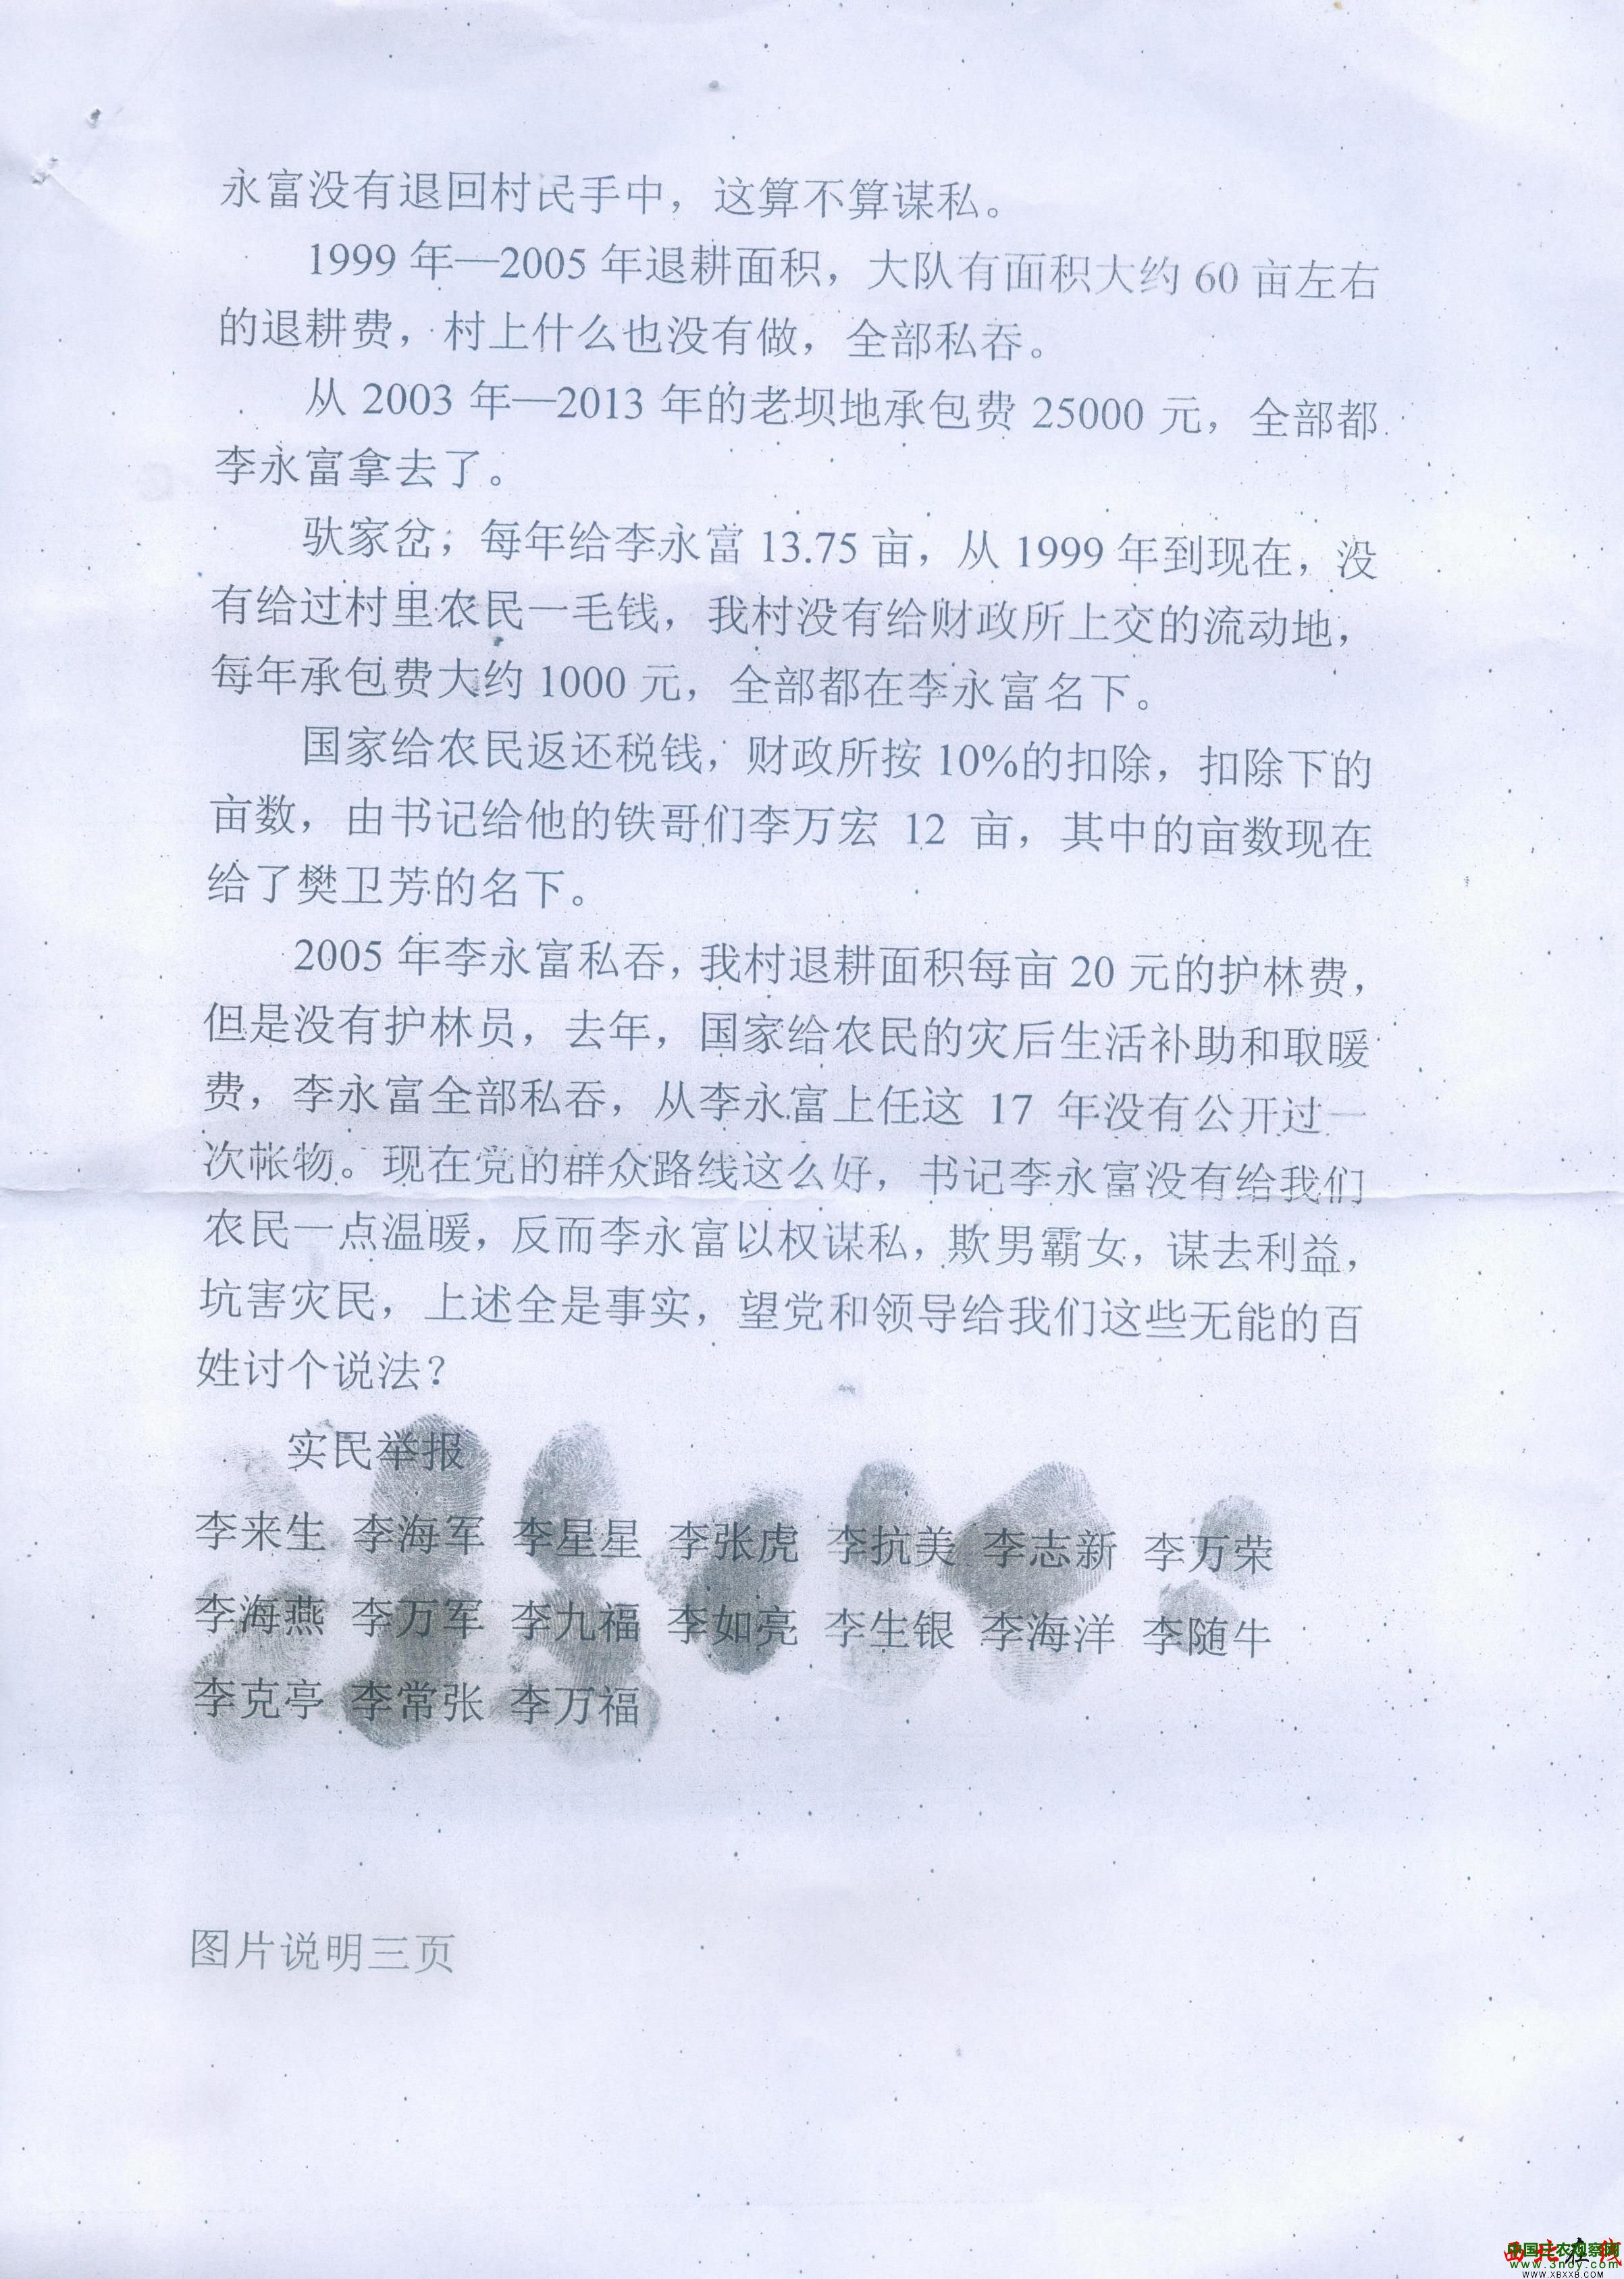 永富没有退回村民手中，这算不算谋私。
1999 年—2005 年退耕面积，大队有面积大约 60 亩左右
的退耕费，村上什么也没有做，全部私吞。
从 2003 年—2013 年的老坝地承包费 25000 元，全部都
李永富拿去了。
驮家岔；每年给李永富 13.75 亩，从 1999 年到现在，没
有给过村里农民一毛钱，我村没有给财政所上交的流动地，
每年承包费大约 1000 元，全部都在李永富名下。
国家给农民返还税钱，财政所按 10%的扣除，扣除下的
亩数，由书记给他的铁哥们李万宏 12 亩，其中的亩数现在
给了樊卫芳的名下。
2005 年李永富私吞，我村退耕面积每亩 20 元的护林费，
但是没有护林员，去年，国家给农民的灾后生活补助和取暖
费，李永富全部私吞，从李永富上任这 17 年没有公开过一
次帐物。现在党的群众路线这么好，书记李永富没有给我们
农民一点温暖，反而李永富以权谋私，欺男霸女，谋去利益，
坑害灾民，上述全是事实，望党和领导给我们这些无能的百
姓讨个说法？
实民举报
李来生 李海军 李星星 李张虎 李抗美 李志新 李万荣
李海燕 李万军 李九福 李如亮 李生银 李海洋 李随牛
李克亭 李常张 李万福
图片说明三页
中国三农观察网
www.3noy.com
www.XBXXB.COM